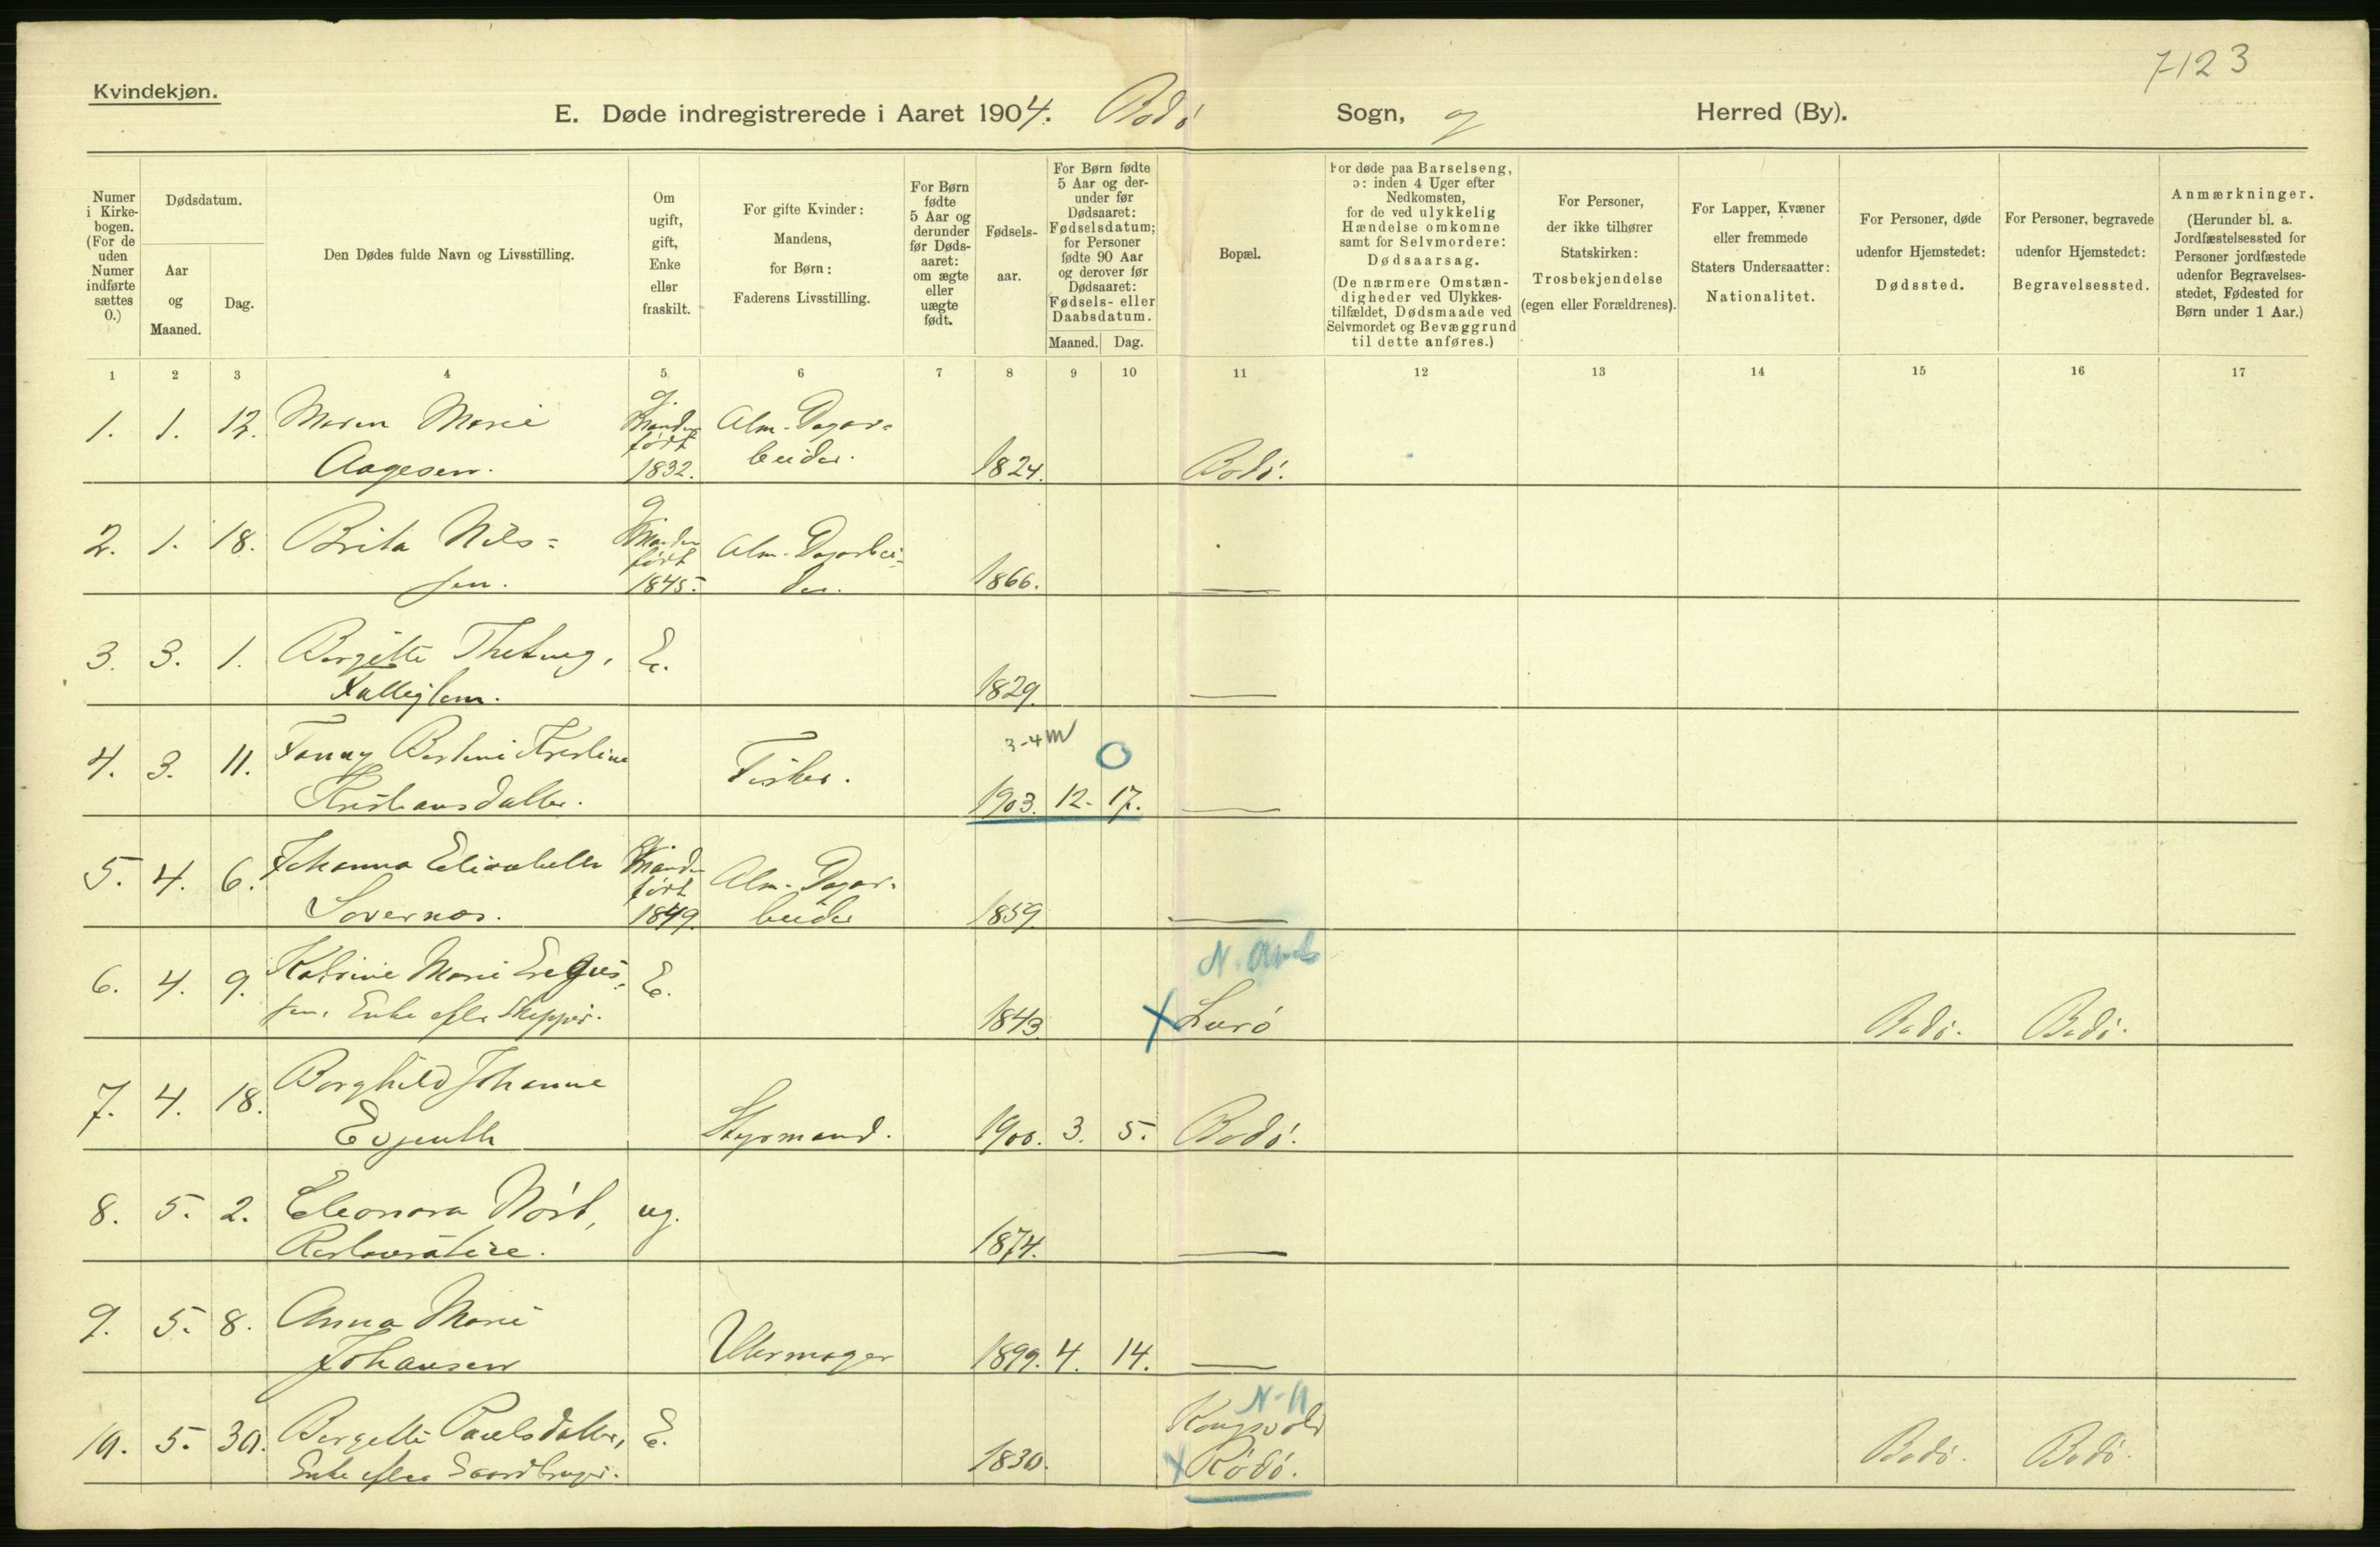 7123
Kvindekjøn.
E. Døde indregistrerede i Aaret 1904. Bodø Sogn, og Herred (By).
Numer i Kirke-bogen. (For de uden Numer indførte sættes 0.)
Dødsdatum.
Aar og Maaned.
Dag.
Den Dødes fulde Navn og Livsstilling.
Om ugift, gift, Enke eller fraskilt.
For gifte Kvinder: Mandens, for Børn: Faderens Livsstilling.
For Børn fødte 5 Aar og derunder før Døds-aaret: om ægte eller uægte født.
Fødsels-aar.
For Børn fødte 5 Aar og der-under før Dødsaaret: Fødselsdatum; for Personer fødte 90 Aar og derover før Dødsaaret: Fødsels- eller Daabsdatum.
Maaned. Dag.
Bopæl.
For døde paa Barselseng, ɔ: inden 4 Uger efter Nedkomsten, for de ved ulykkelig Hændelse omkomne samt for Selvmordere: Dødsaarsag.
(De nærmere Omstæn-digheder ved Ulykkes-tilfældet, Dødsmaade ved Selvmordet og Bevæggrund til dette anføres.)
For Personer, der ikke tilhører Statskirken: Trosbekjendelse (egen eller Forældrenes).
For Lapper, Kvæner eller fremmede Staters Undersaatter: Nationalitet.
For Personer, døde udenfor Hjemstedet: Dødssted.
For Personer, begravede udenfor Hjemstedet: Begravelsessted.
Anmærkninger.
(Herunder bl. a. Jordfæstelsessted for Personer jordfæstede udenfor Begravelses-stedet, Fødested for Børn under 1 Aar.)
1 2 3 4 5 6 7 8 9 10 11 12 13 14 15 16 17
1. 1. 12. Maren Marie g. Manden Alm. Dagar-
født beider.
Aagesen. 1832. 1824. Bodø.
2. 1. 18. Brita Nils= g. Manden Alm. Dagarbei-
født
sen. 1845. der. 1866. —
3. 3. 1. Bergitte E.
1829. —
4. 3. 11. Fanny Fisker. 3-4 m
Kristiansdatter. 1903. 12. 17. —
5. 4. 6. Johanna Elisabeth g. Manden Alm. Dagar-
født
1849. beider 1859. —
6. 4. 9. Katrine Marie E. N. Amt
sen, Enke efter Skipper. 1843. Lurø Bodø. Bodø.
7. 4. 18. Borghild Johanne
Evjenth Styrmand. 1900. 3. 5. Bodø.
8. 5. 2. Eleonora ug.
1874. —
9. 5. 8. Anna Marie
Johansen Uhrmager 1899. 4. 14. —
10. 5. 30. Bergitte Paulsdatter, E. N-A
Kongsvold
Enke efter Gaardbruger. 1830. Rødø. Bodø. Bodø.